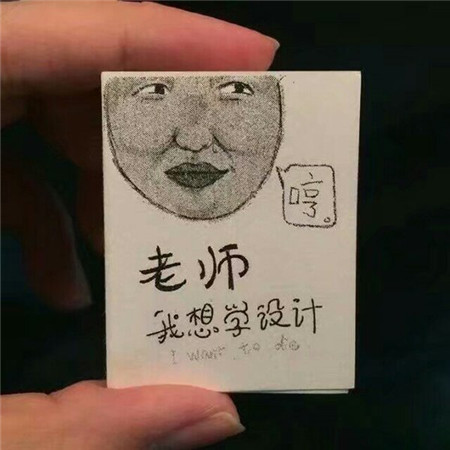 哼。
老师
我想学设计
I want to die